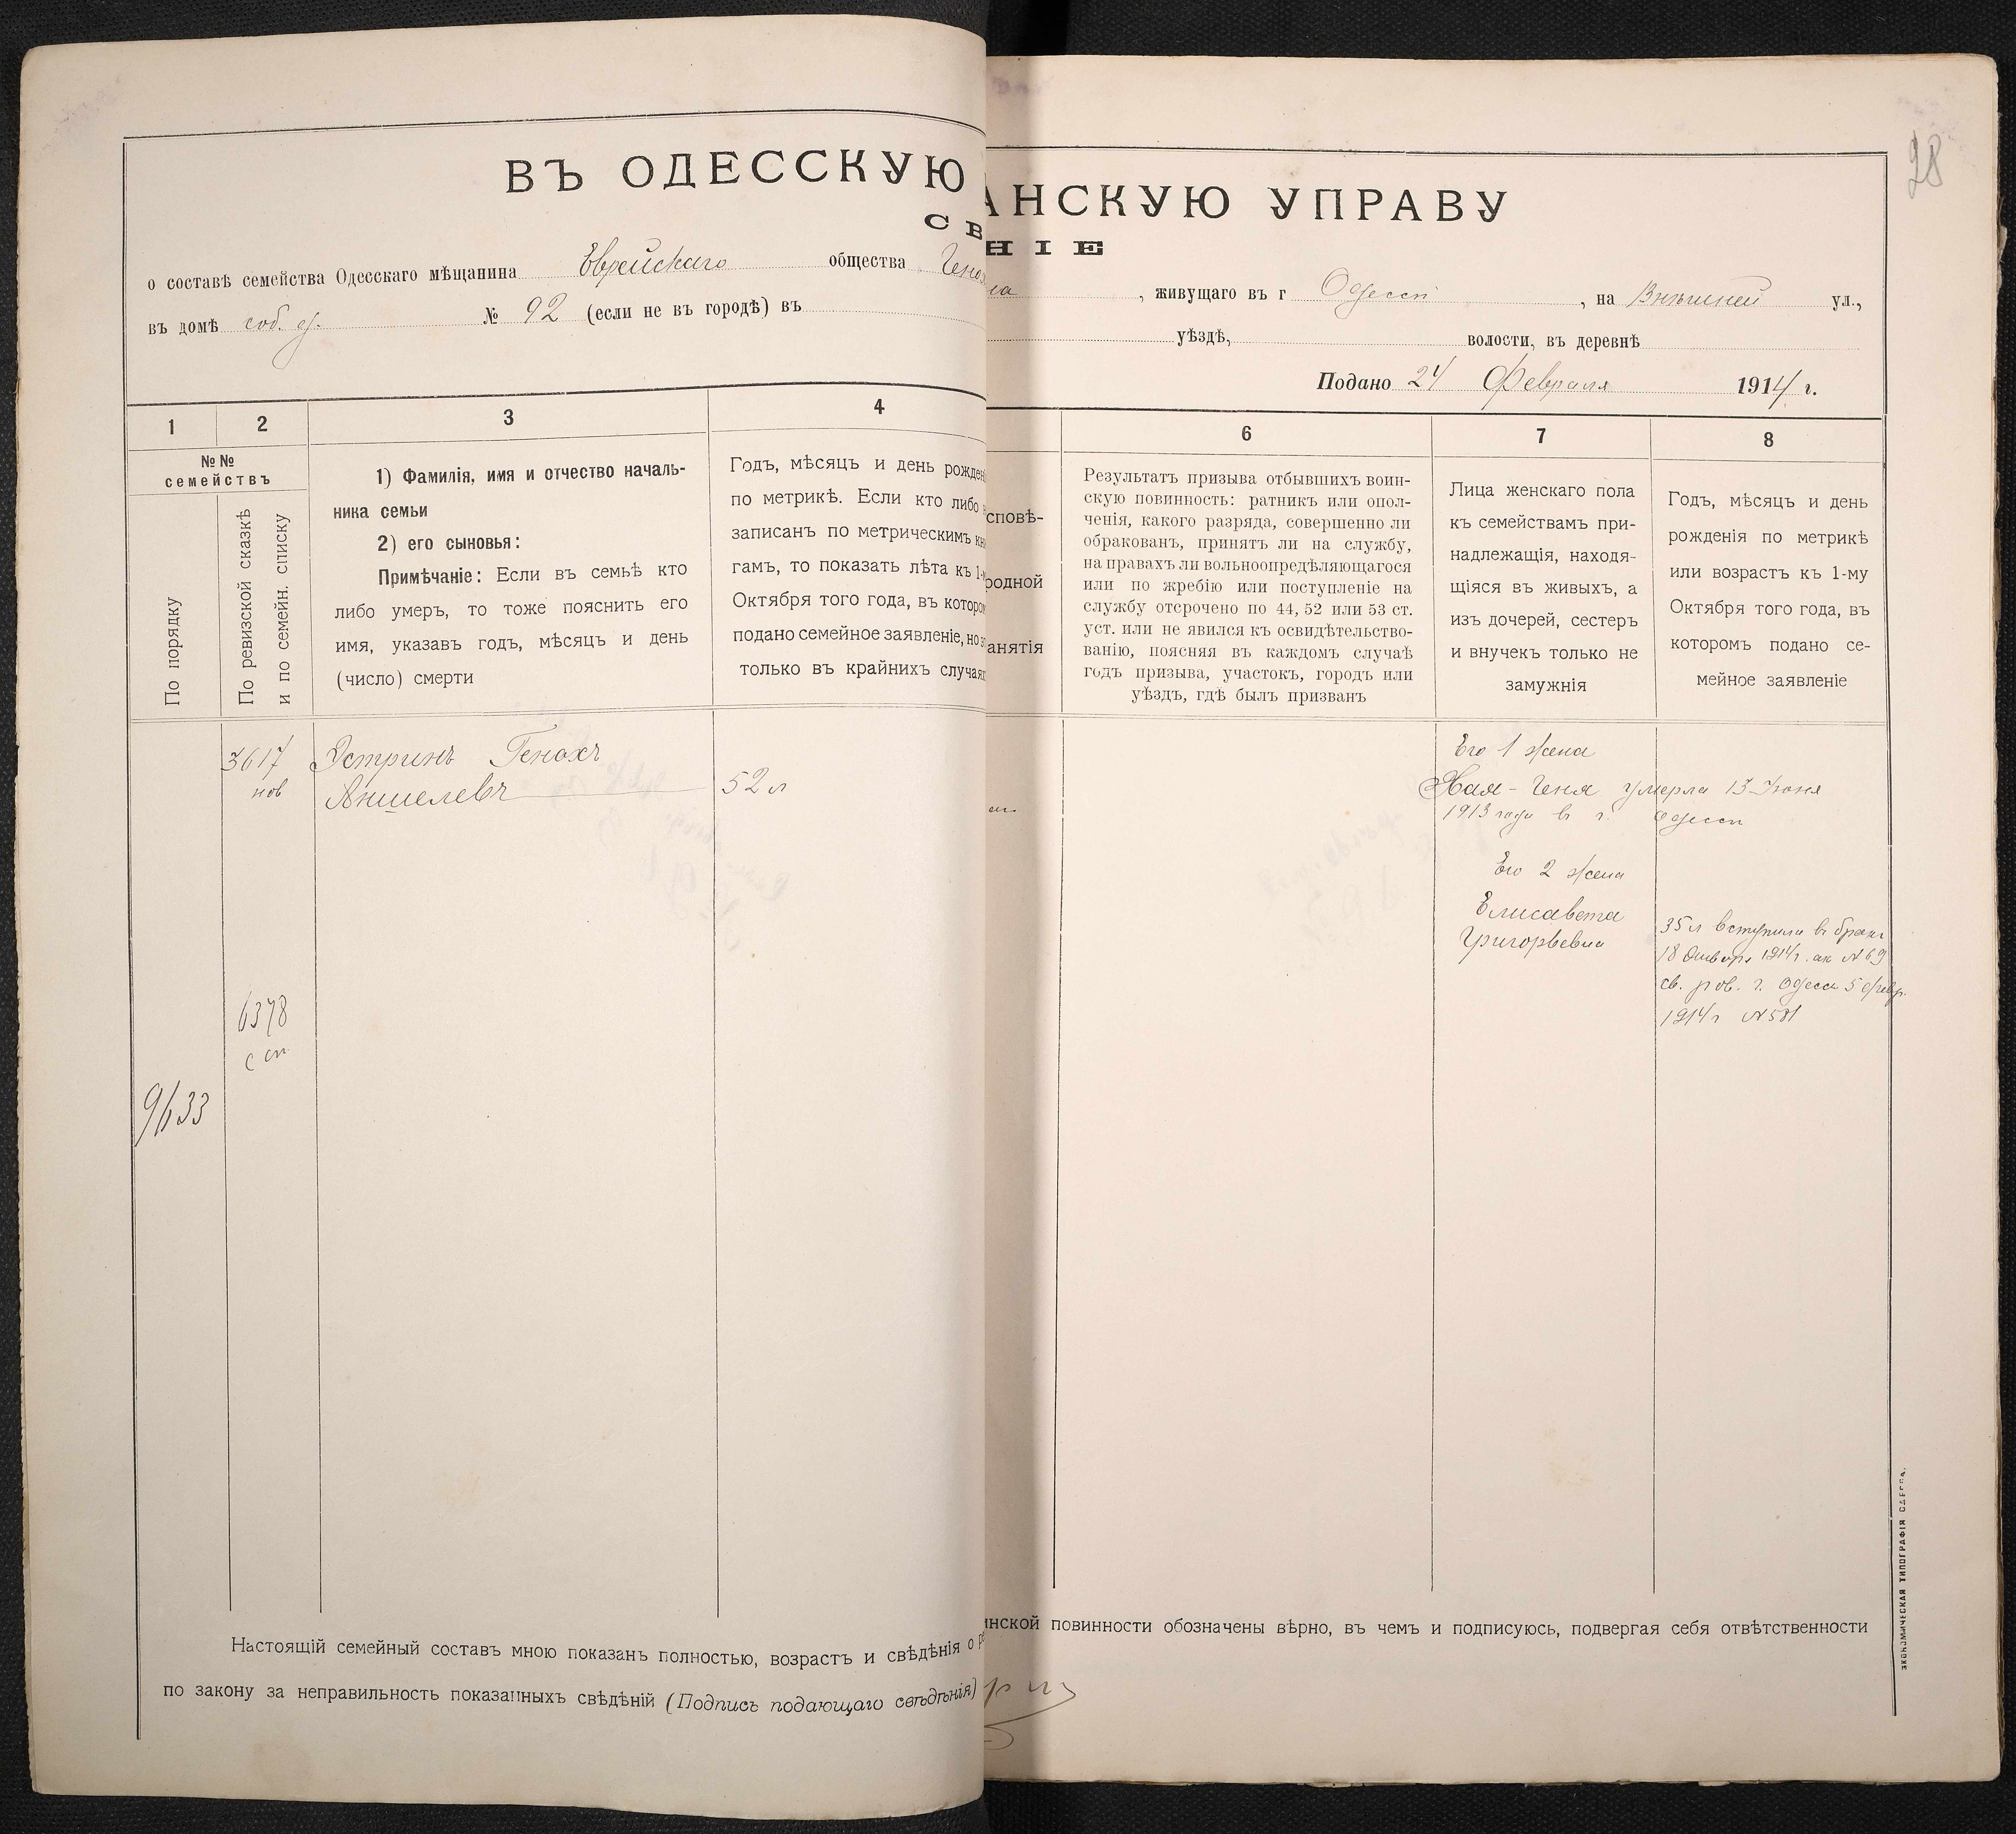 28
ВЪ ОДЕССКУЮ АНСКУЮ УПРАВУ
СВ НІЕ
о составѣ семейства Одесскаго мѣщанина Еврейскаго общества , живущаго въ г Одессѣ , на Внѣшней ул.,
въ домѣ соб. д. № 92 (если не въ городѣ) въ уѣздѣ, волости, въ деревнѣ
Подано 24 Февраля 1914 г.
1 2 3 4 6 7 8
№№
семействъ
По порядку
По ревизской сказкѣ
и по семейн. списку
1) Фамилія, имя и отчество началь-
ника семьи
2) его сыновья:
Примѣчаніе: Если въ семьѣ кто
либо умеръ, то тоже пояснить его
имя, указавъ годъ, мѣсяцъ и день
(число) смерти
Годъ, мѣсяцъ и день рожден
по метрикѣ. Если кто либо
записанъ по метрическимъ кн
гамъ, то показать лѣта къ 1-м
Октября того года, въ которо
подано семейное заявленіе, но э
только въ крайнихъ случая
сповѣ-
родной
анятія
Результатъ призыва отбывшихъ воин-
скую повинность: ратникъ или опол-
ченія, какого разряда, совершенно ли
обракованъ, принятъ ли на службу,
на правахъ ли вольноопредѣляющагося
или по жребію или поступленіе на
службу отсрочено по 44, 52 или 53 ст.
уст. или не явился къ освидѣтельство-
ванію, поясняя въ каждомъ случаѣ
годъ призыва, участокъ, городъ или
уѣздъ, гдѣ былъ призванъ
Лица женскаго пола
къ семействамъ при-
надлежащія, находя-
щіяся въ живыхъ, а
изъ дочерей, сестеръ
и внучекъ только не
замужнія
Годъ, мѣсяцъ и день
рожденія по метрикѣ
или возрастъ къ 1-му
Октября того года, въ
которомъ подано се-
мейное заявленіе
3617
нов
Эстринъ Генохъ
Аншелевъ
52 л
Его 1 жена
Хая-Геня умерла 13 Іюня
1913 года в г. Одессѣ
Его 2 жена
Елисавета
Григорьевна
35 л вступили в бракъ
18 Января 1914 г. ак № 69
св. ров. г. Одесса 5 февр.
1914 г №581
6378
с сп
9633
Настоящій семейный составъ мною показанъ полностью, возрастъ и свѣдѣнія о инской повинности обозначены вѣрно, въ чемъ и подписуюсь, подвергая себя отвѣтственности
по закону за неправильность показанныхъ свѣдѣній (Подпись подающаго свѣдѣнія)
ЭКОНОМИЧЕСКАЯ ТИПОГРАФІЯ ОДЕССА.